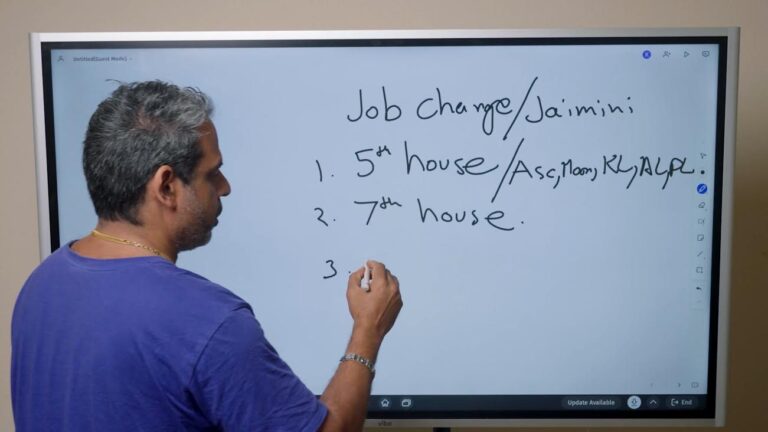 Untitled(Guest Mode)
Job change/Jaimini
1. 5th house/Asc,Moon,KL,AL,PL.
2. 7th house.
3.
Update Available
End
vibe